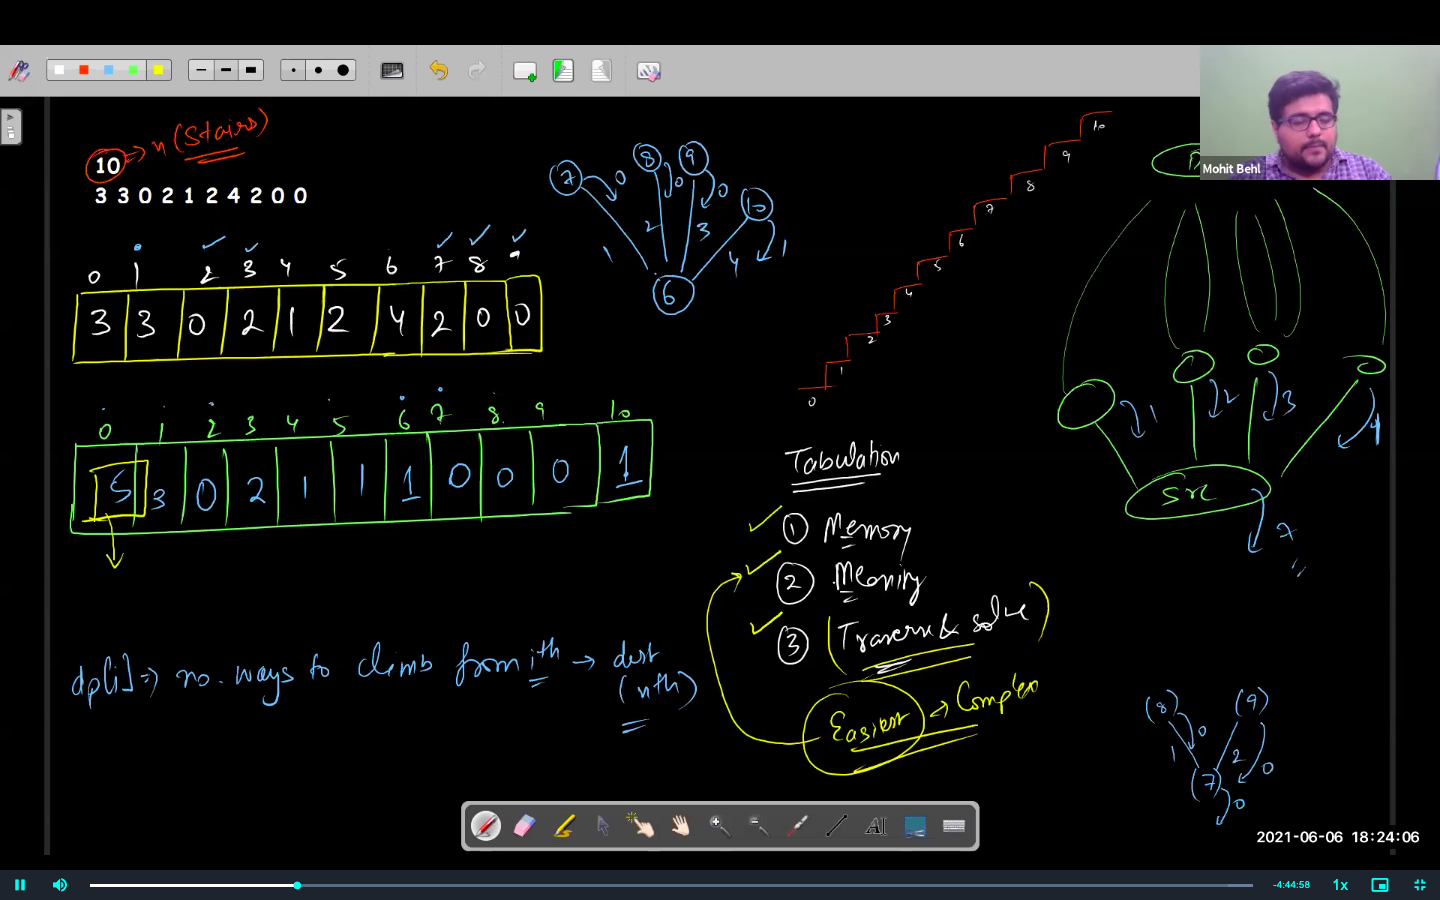 10 → n (Stairs)
3 3 0 2 1 2 4 2 0 0
0 1 2 3 4 5 6 7 8 9
3 3 0 2 1 2 4 2 0 0
0 1 2 3 4 5 6 7 8 9 10
5 3 0 2 1 1 1 0 0 0 1
dp[i] => no. ways to climb from ith → dest
(nth)
7 0 8 0 9 0 10 1
1 2 3 4
6
0 1 2 3 4 5 6 7 8 9 10
Tabulation
① Memory
② Meaning
③ (Traverse & solve)
Easiest → Complex
D
1 2 3 4
Src
?
(8) 0 (9) 0
1 2
(7) 0
Mohit Behl
AI
2021-06-06 18:24:06
-4:44:58 1x